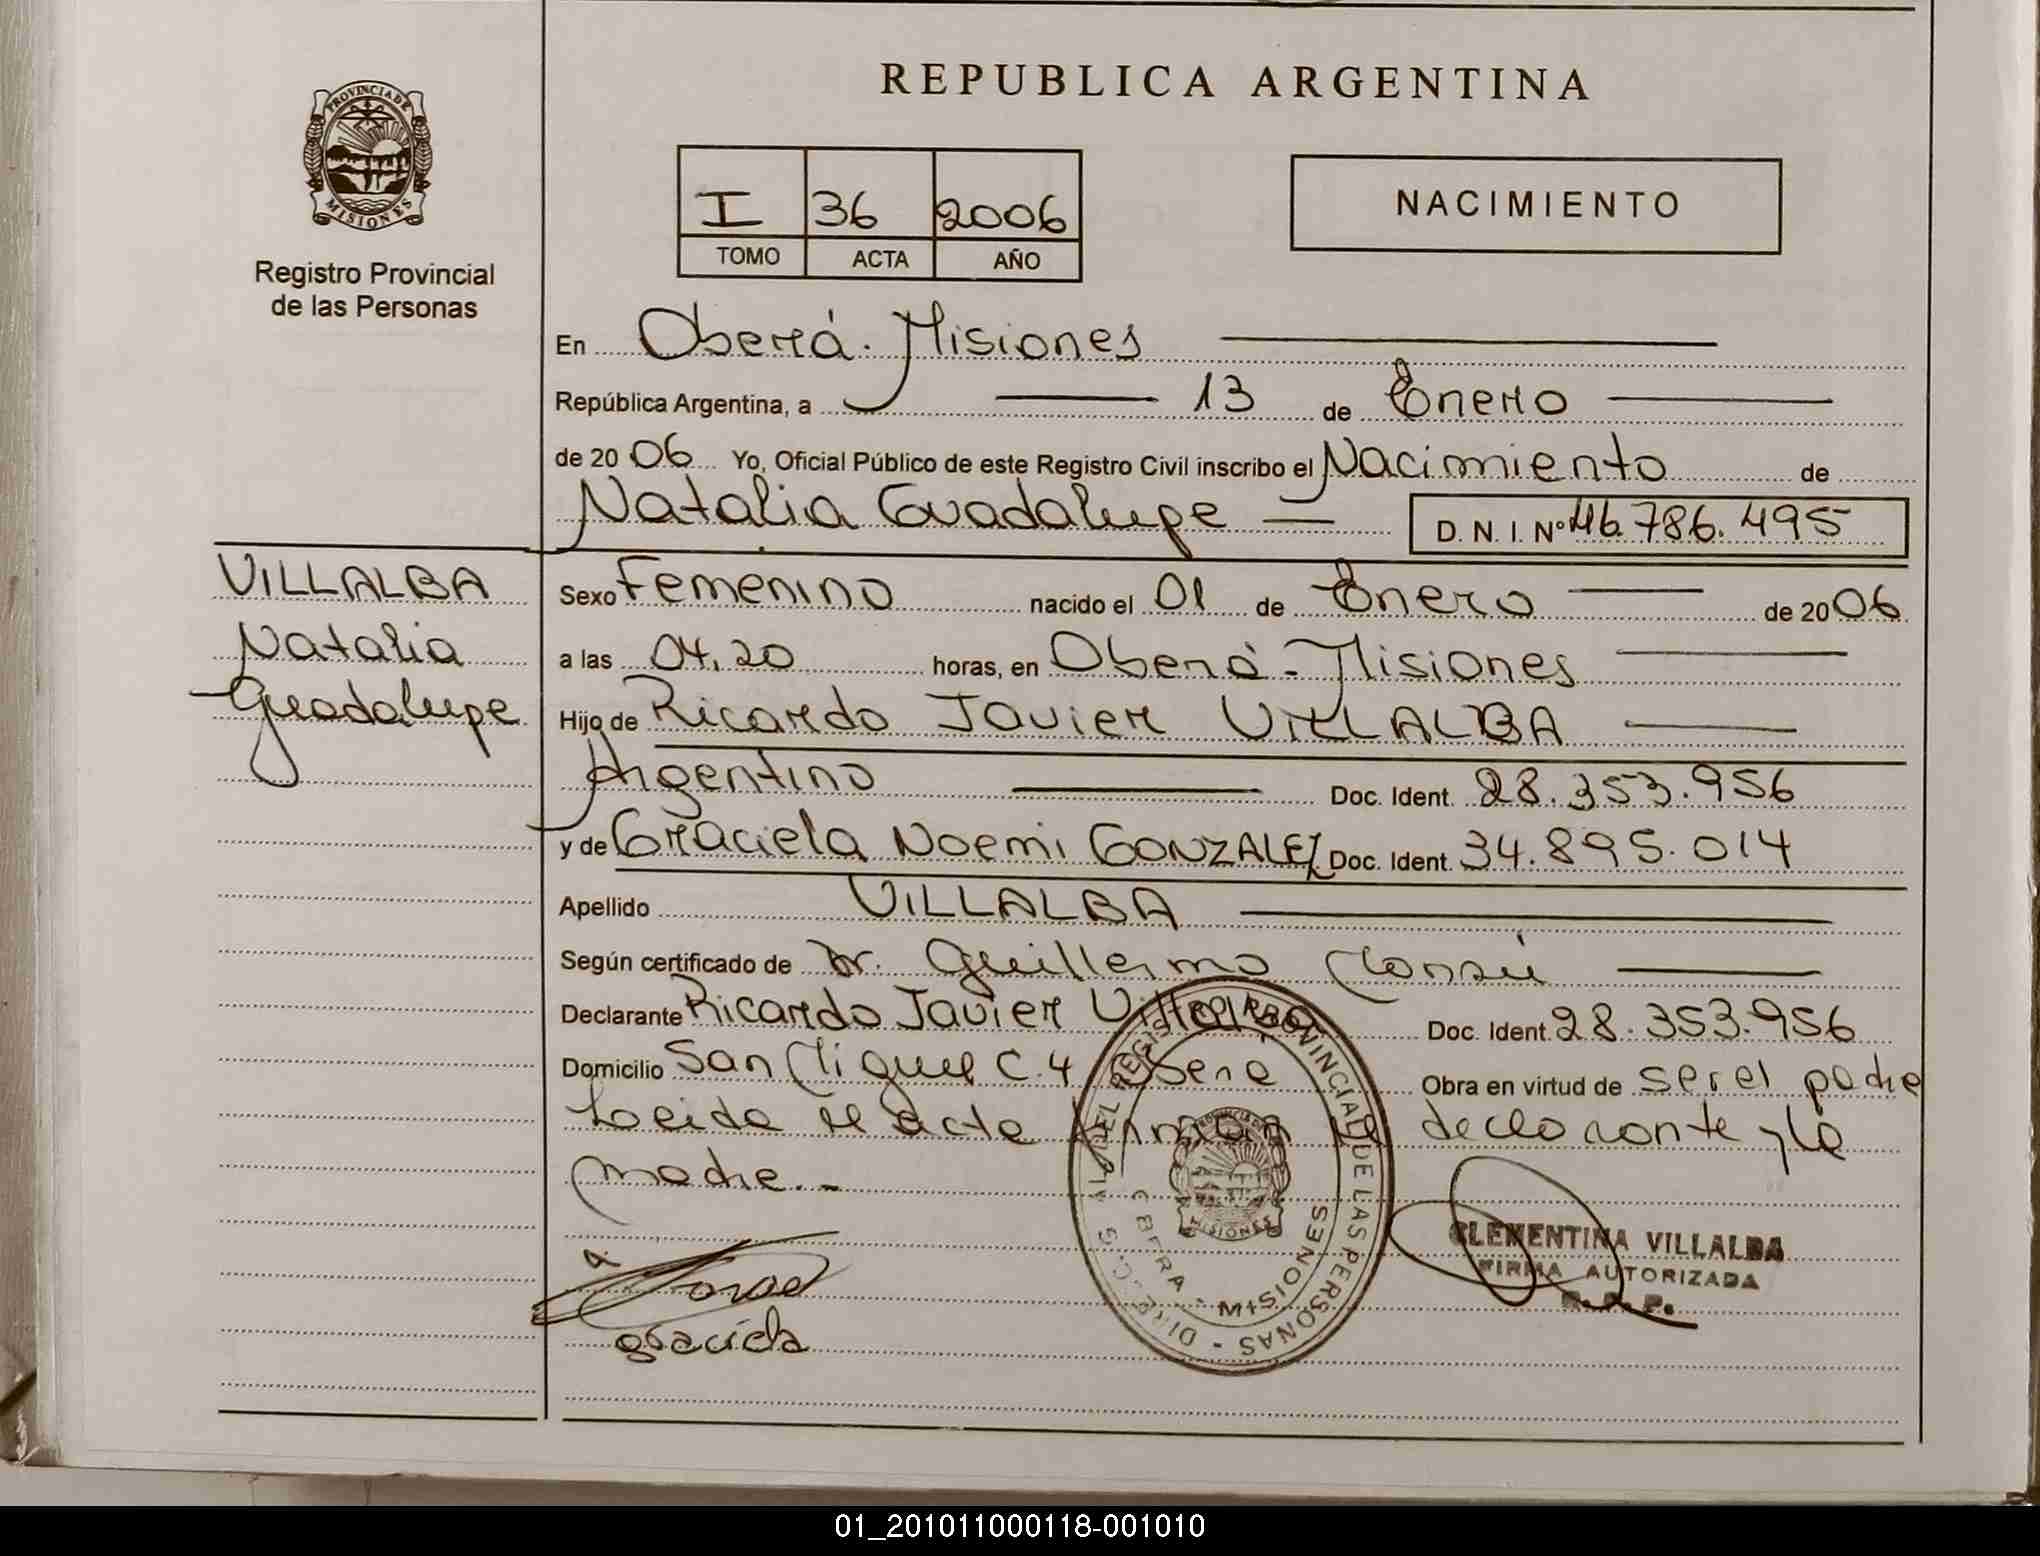 REPUBLICA ARGENTINA
PROVINCIA DE
MISIONES
Registro Provincial
de las Personas
I 36 2006
TOMO ACTA AÑO
NACIMIENTO
En Oberá. Misiones
República Argentina, a 13 de Enero
de 2006 Yo, Oficial Público de este Registro Civil inscribo el Nacimiento de
Natalia Guadalupe D. N. I. Nº 46.786.495
VILLALBA
Natalia
Guadalupe
Sexo Femenino nacido el 01 de Enero de 2006
a las 04,20 horas, en Oberá - Misiones
Hijo de Ricardo Javier VILLALBA
Argentino Doc. Ident. 28.353.956
y de Graciela Noemi GONZALEZ Doc. Ident. 34.895.014
Apellido VILLALBA
Según certificado de Dr. Guillermo
Declarante Ricardo Javier Villalba Doc. Ident. 28.353.956
Domicilio San Miguel C. 4 Oberá Obra en virtud de ser el padre
Leida el acta firman el declarante y la
madre.-
DEL REGISTRO PROVINCIAL DE LAS PERSONAS
MISIONES
MISIONES
CLEMENTINA VILLALBA
FIRMA AUTORIZADA
R. P. P.
graciela
01_201011000118-001010